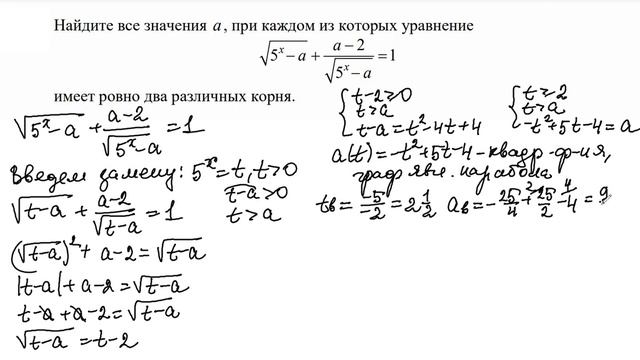 Найдите все значения a, при каждом из которых уравнение
√(5ˣ − a) + (a − 2)/√(5ˣ − a) = 1
имеет ровно два различных корня.
√(5ˣ − a) + (a − 2)/√(5ˣ − a) = 1
Введем замену: 5ˣ = t, t > 0
√(t − a) + (a − 2)/√(t − a) = 1
t − a > 0
t > a
(√(t − a))² + a − 2 = √(t − a)
|t − a| + a − 2 = √(t − a)
t − a + a − 2 = √(t − a)
√(t − a) = t − 2
{ t − 2 ≥ 0
t > a
t − a = t² − 4t + 4
{ t ≥ 2
t > a
−t² + 5t − 4 = a
a(t) = −t² + 5t − 4 – квадр. ф-ия,
граф явл. парабола
tв = −5/−2 = 2 1/2
aв = −25/4 + 25/2 − 4 = 9